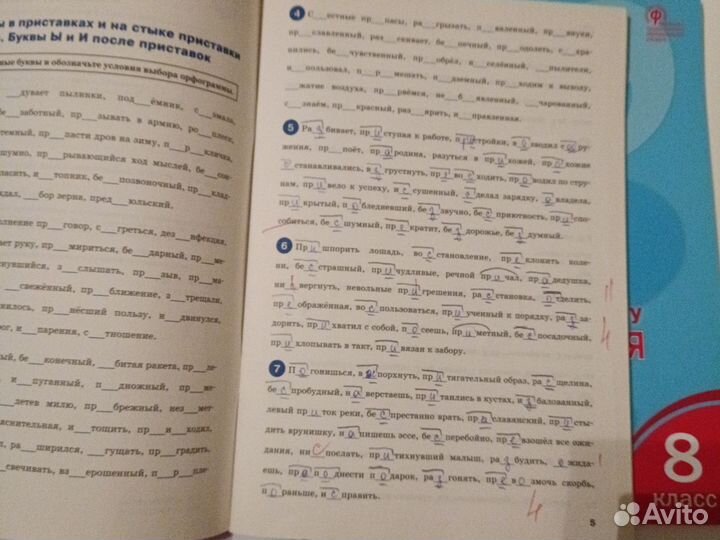 ы в приставках и на стыке приставки
. Буквы Ы и И после приставок
ные буквы и обозначьте условия выбора орфограммы.
дувает пылинки, под__ёмник, с__мала,
бе__заботный, пр__зывать в армию, ро__плеск,
пр__пасти дров на зиму, п__р__кличка,
шумно, пр__рывающийся ход мыслей, бе__сон
ласить, и__топник, бе__позвоночный, пр__клад
дал, __бор зерна, пред__юльский.
лнение пр__говор, с__греться, дез__нфекция,
ает руку, пр__мириться, бе__дарный, пр__ме
нувшийся, з__слышать, пр__зыв, пр__ма
__свежённый, пр__ближение, з__трещали,
илось, пр__нёсший пользу, и__двинулся,
рог, и__парения, с__тношение.
ый, бе__конечный, __битая ракета, пр__де
и__пуганный, п__дножный, пр__ме
__детев милю, пр__брежный, нез__мет
яснительная, и__тощить, пр__и__ходил,
л, ра__ширился, __гущать, пр__градить,
__свечивать, вз__ерошенный, п__р__пле
4 С__естные пр__пасы, ра__грызать, п__валенный, пр__внуки,
пр__славленный, раз__скивает, бе__печный, пр__одолеть, с__хра-
нились, бе__чувственный, пр__обрёл, н__селённый, __пылители,
и__пользовал, п__р__мешать, п__дземный, пр__ходим к выводу,
__жатие воздуха, пр__рвёмся, не__б__явленный, __чарованный,
с__знаём, пр__красный, раз__ярить, и__правленная.
5 Разбивает, приступая к работе, пристройки, возводил соору-
жения, пр__поёт, прародина, разуться в прихожей, прохожие
останавливались, взгрустнуть, превосходить, проводил по стру-
нам, привело к успеху, иссушенный, сделал зарядку, овладела,
прикрытый, побледневший, беззвучно, бесприютность, приспо-
собиться, бесшумный, прекратит, бездорожье, бездумный.
6 Пришпорить лошадь, восстановление, преклонить коле-
ни, бесстрашный, причудливые, речной причал, прадедушка,
низвергнуть, невольные пригрешения, расстановка, отделить,
преображённая, воспользоваться, приученный к порядку, раззa-
дорить, прихватил с собой, посеешь, приметный, беспосадочный,
прихлопывать в такт, привязан к забору.
7 Погонишься, впорхнуть, притягательный образ, расщелина,
беспробудный, наверстаешь, притаились в кустах, избалованный,
левый приток реки, беспрестанно врать, праславянский, присты-
дить врунишку, напишешь эссе, бесперебойно, превзошёл все ожи-
дания, ниспослать, притихнувший малыш, разбудить, ожида-
ешь, преподнести подарок, разгонять, превозмочь скорбь,
пораньше, исправить.
4
4
5
У
Я
8
КЛАСС
Avito